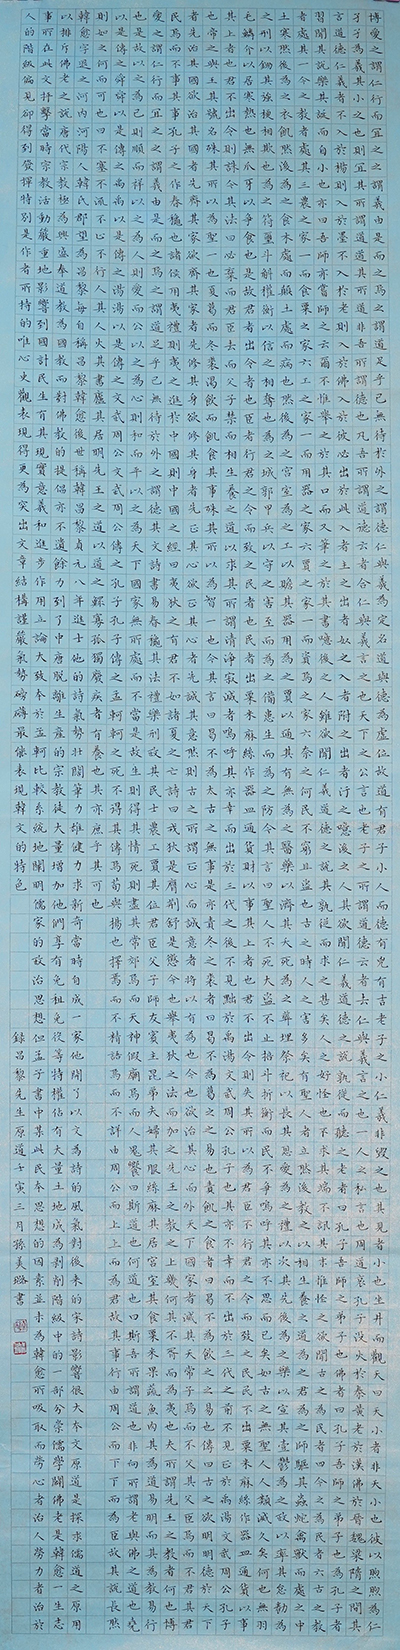 博愛之謂仁行而宜之之謂義由是而之焉之謂道足乎己無待於外之謂德仁與義為定名道與德為虛位故道有君子小人而德有凶有吉老子之小仁義非毀之也其見者小也坐井而觀天曰天小者非天小也彼以煦煦為仁
孑孑為義其小之也則宜其所謂道道其所道非吾所謂道也其所謂德德其所德非吾所謂德也凡吾所謂道德云者合仁與義言之也天下之公言也老子之所謂道德云者去仁與義言之也一人之私言也周道衰孔子沒火於秦黃老於漢佛於晉魏梁隋之間其
言道德仁義者不入於楊則入於墨不入於老則入於佛入於彼必出於此入者主之出者奴之入者附之出者汙之噫後之人其欲聞仁義道德之說孰從而聽之老者曰孔子吾師之弟子也佛者曰孔子吾師之弟子也為孔子者
習聞其說樂其誕而自小也亦曰吾師亦嘗師之云爾不惟舉之於其口而又筆之於其書噫後之人雖欲聞仁義道德之說其孰從而求之甚矣人之好怪也不求其端不訊其末惟怪之欲聞古之為民者四今之為民者六古之教
者處其一今之教者處其三農之家一而食粟之家六工之家一而用器之家六賈之家一而資焉之家六奈之何民不窮且盜也古之時人之害多矣有聖人者立然後教之以相生養之道為之君為之師驅其蟲蛇禽獸而處之中
土寒然後為之衣飢然後為之食木處而顛土處而病也然後為之宮室為之工以贍其器用為之賈以通其有無為之醫藥以濟其夭死為之葬埋祭祀以長其恩愛為之禮以次其先後為之樂以宣其壹鬱為之政以率其怠勌為
之刑以鋤其強梗相欺也為之符璽斗斛權衡以信之相奪也為之城郭甲兵以守之害至而為之備患生而為之防今其言曰聖人不死大盜不止掊斗折衡而民不爭嗚呼其亦不思而已矣如古之無聖人人類滅久矣何也無羽
毛鱗介以居寒熱也無爪牙以爭食也是故君者出令者也臣者行君之令而致之民者也民者出粟米麻絲作器皿通貨財以事其
上者也君不出令則
以求其所謂清淨寂滅者嗚呼其亦幸而出於三代之後不見黜於禹湯文武周公孔子也其亦不幸而不出於三代之前不見正於禹湯文武周公孔子
也帝之與王其號雖殊其所以為聖一也夏葛而冬裘渴飲而飢食其事雖殊其所以為智一也今其言曰曷不為太古之無事是亦責冬之裘者曰曷不為葛之之易也責飢之食者曰曷不為飲之之易也傳曰古之欲明明德於天下
者先治其國欲治其國者先齊其家欲齊其家者先修其身欲修其身者先正其心欲正其心者先誠其意然則古之所謂正心而誠意者將以有為也今也欲治其心而外天下國家滅其天常子焉而不父其父臣焉而不君其君
民焉而不事其事孔子之作春秋也諸侯用夷禮則夷之進於中國則中國之經曰夷狄之有君不如諸夏之亡詩曰戎狄是膺荊舒是懲今也舉夷狄之法而加之先王之教之上幾何其不胥而為夷也夫所謂先王之教者何也博
愛之謂仁行而宜之之謂義由是而之焉之謂道足乎己無待於外之謂德其文詩書易春秋其法禮樂刑政其民士農工賈其位君臣父子師友賓主昆弟夫婦其服絲麻其居宮室其食粟米果蔬魚肉其為道易明而其為教易行
也是故以之為己則順而祥以之為人則愛而公以之為心則和而平以之為天下國家無所處而不當是故生則得其情死則盡其常郊焉而天神假廟焉而人鬼饗曰斯道也何道也曰斯吾所謂道也非向所謂老與佛之道也堯
以是傳之舜舜以是傳之禹禹以是傳之湯湯以是傳之文武周公文武周公傳之孔子孔子傳之孟軻軻之死不得其傳焉荀與揚也擇焉而不精語焉而不詳由周公而上上而為君故其事行由周公而下下而為臣故其說長然
則如之何而可也曰不塞不流不止不行人其人火其書廬其居明先王之道以道之鰥寡孤獨廢疾者有養也其亦庶乎其可也
韓愈字退之河內河陽人韓氏為昌黎郡望每自稱昌黎後世稱韓昌黎貞元八年進士他的詩氣勢壯闊筆力雄健力求新奇有時自成一家他開了以文為詩的風氣對後來的宋詩影響很大本文是探求儒道之原用
以排斥佛老之說唐代宗教極為興盛奉道教為國教而對佛教的提倡亦不遺餘力到了中唐脫離生產的宗教徒大量增加他們享有免租免役等特權佔有大量土地成為剝削階級中的一部分崇儒學闢佛老是韓愈一生志
事所在此文抨擊當時宗教活動嚴重地影響到國計民生有其現實意義和進步作用立論大致本於孟軻比較系統地闡明儒家的政治思想但孟子書中某些民本思想的因素並未為韓愈所吸取而勞心者治人勞力者治於
人的階級偏見卻得到發揮特別是作者所持的唯心史觀表現得更為突出文章結構謹嚴氣勢磅礡最表現韓文的特色
錄昌黎先生原道壬寅三月孫美璐書